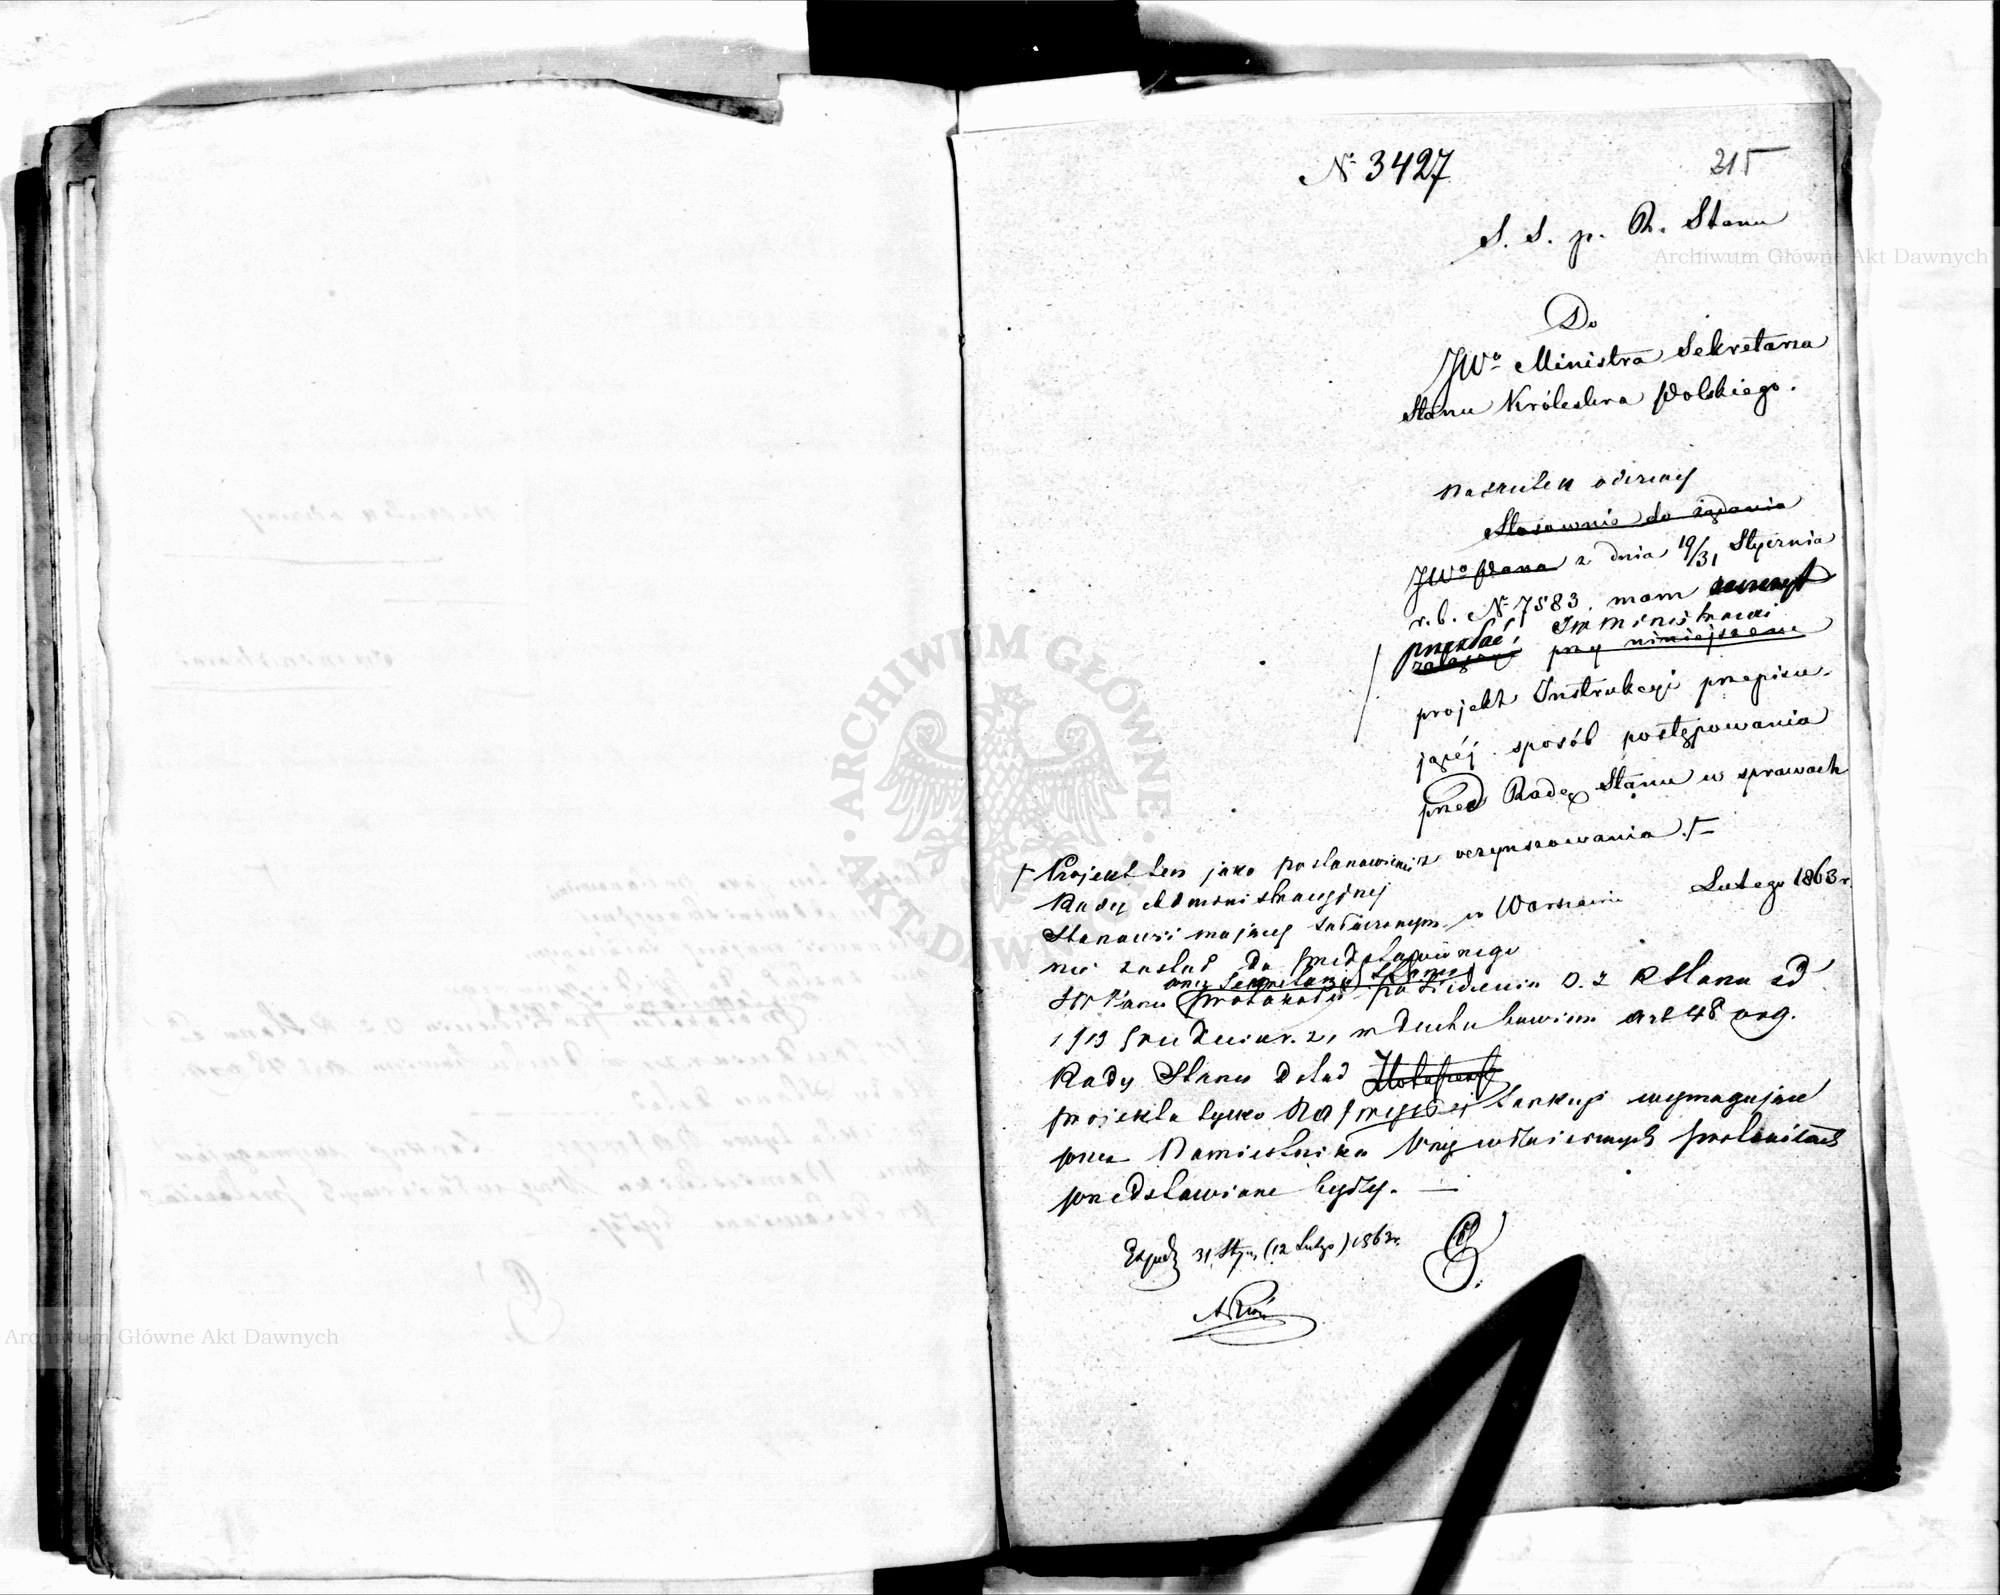 № 3427
215
S. S. p. R. Stanu
Do
JWo Ministra Sekretarza
Stanu Królestwa Polskiego.
Na skutek odezwy
Stosownie do żądania
JWo Pana z dnia 19/31 Stycznia
r. b. № 7583. mam zaszczyt
przesłać JW Ministrowi
załączyć przy niniejszem
projekt Instrukcyi przepisu-
jącéj sposób postępowania
przed Radą Stanu w sprawach
oczynszowania. †
† Projekt ten jako postanowienie
Rady Administracyjnej
w Warszawie Lutego 1863 r.
Stanowić mający
nie został do przedstawionego
oraz Sekretarz Stanu
JW Panu protokołu posiedzenia O. Z. R Stanu od
1/13 Grudnia r. z, w duchu bowiem art 48 org.
Rady Stanu dotąd
projekta tylko Najwyższej Sankcyi wymagające
przez Namiestnika
przedstawiane były. —
31 Stycz. (12 Lutego) 1863 r.
ARCHIWUM GŁÓWNE
AKT DAWNYCH
Archiwum Główne Akt Dawnych
Archiwum Główne Akt Dawnych